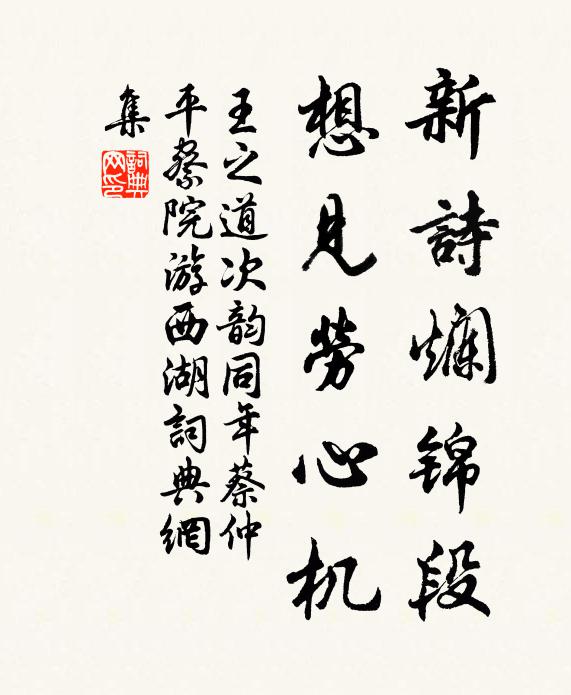 新詩爛锦段
想見勞心机
王之道次韵同年蔡仲
平察院游西湖詞典網
集
詞典
网印